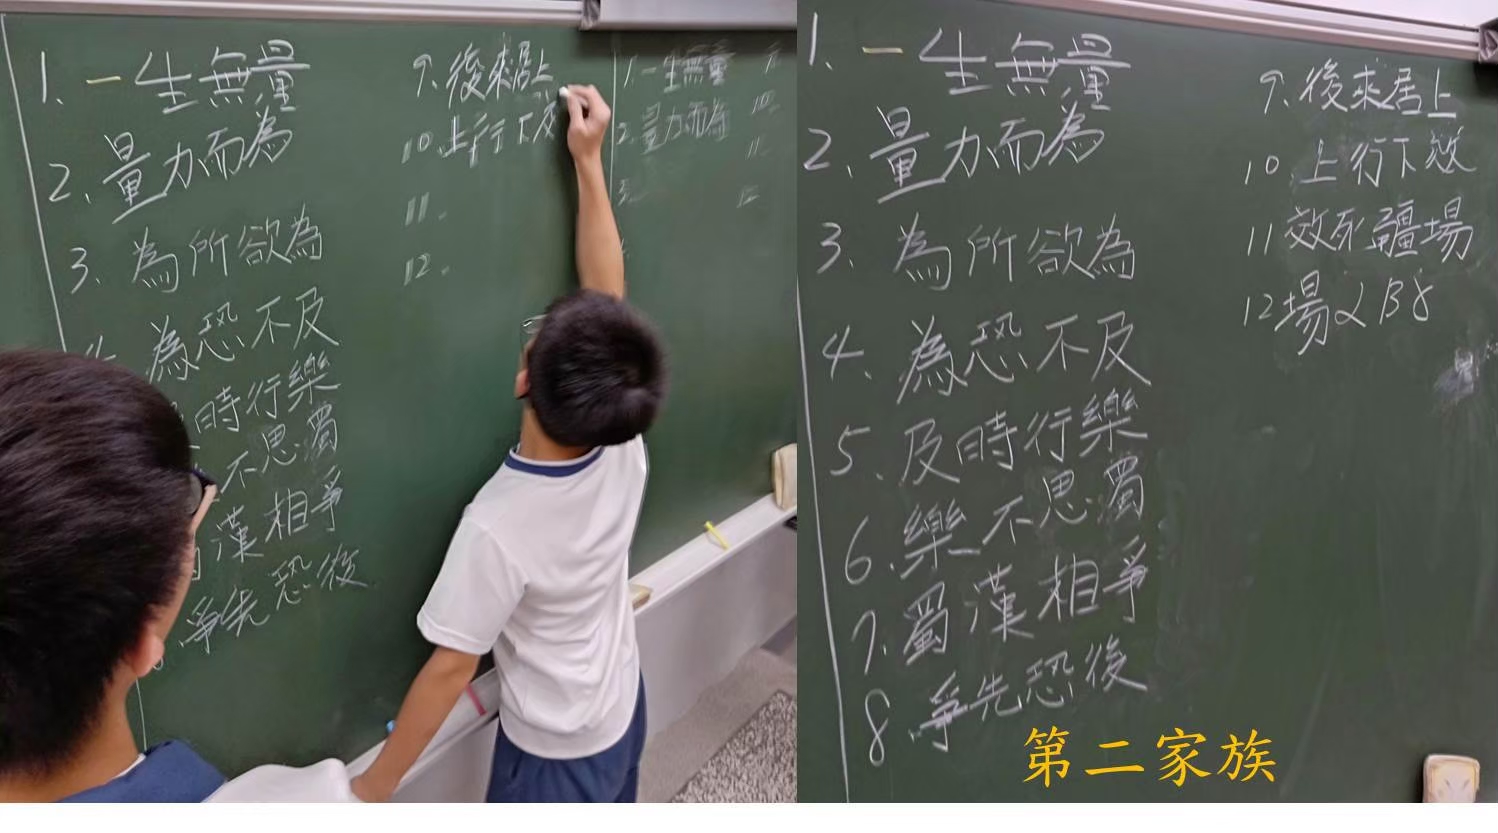 1、一生無量
2、量力而為
3、為所欲為
為恐不及
時行樂
不思蜀
漢相爭
爭先恐後
9、後來居上
10、上行下效
11、
12、
1、一生無量
2、量力而為
3、
10、
11、
12、
1、一生無量
2、量力而為
3、為所欲為
4、為恐不及
5、及時行樂
6、樂不思蜀
7、蜀漢相爭
8 爭先恐後
9、後來居上
10 上行下效
11 效死疆場
12 場
第二家族